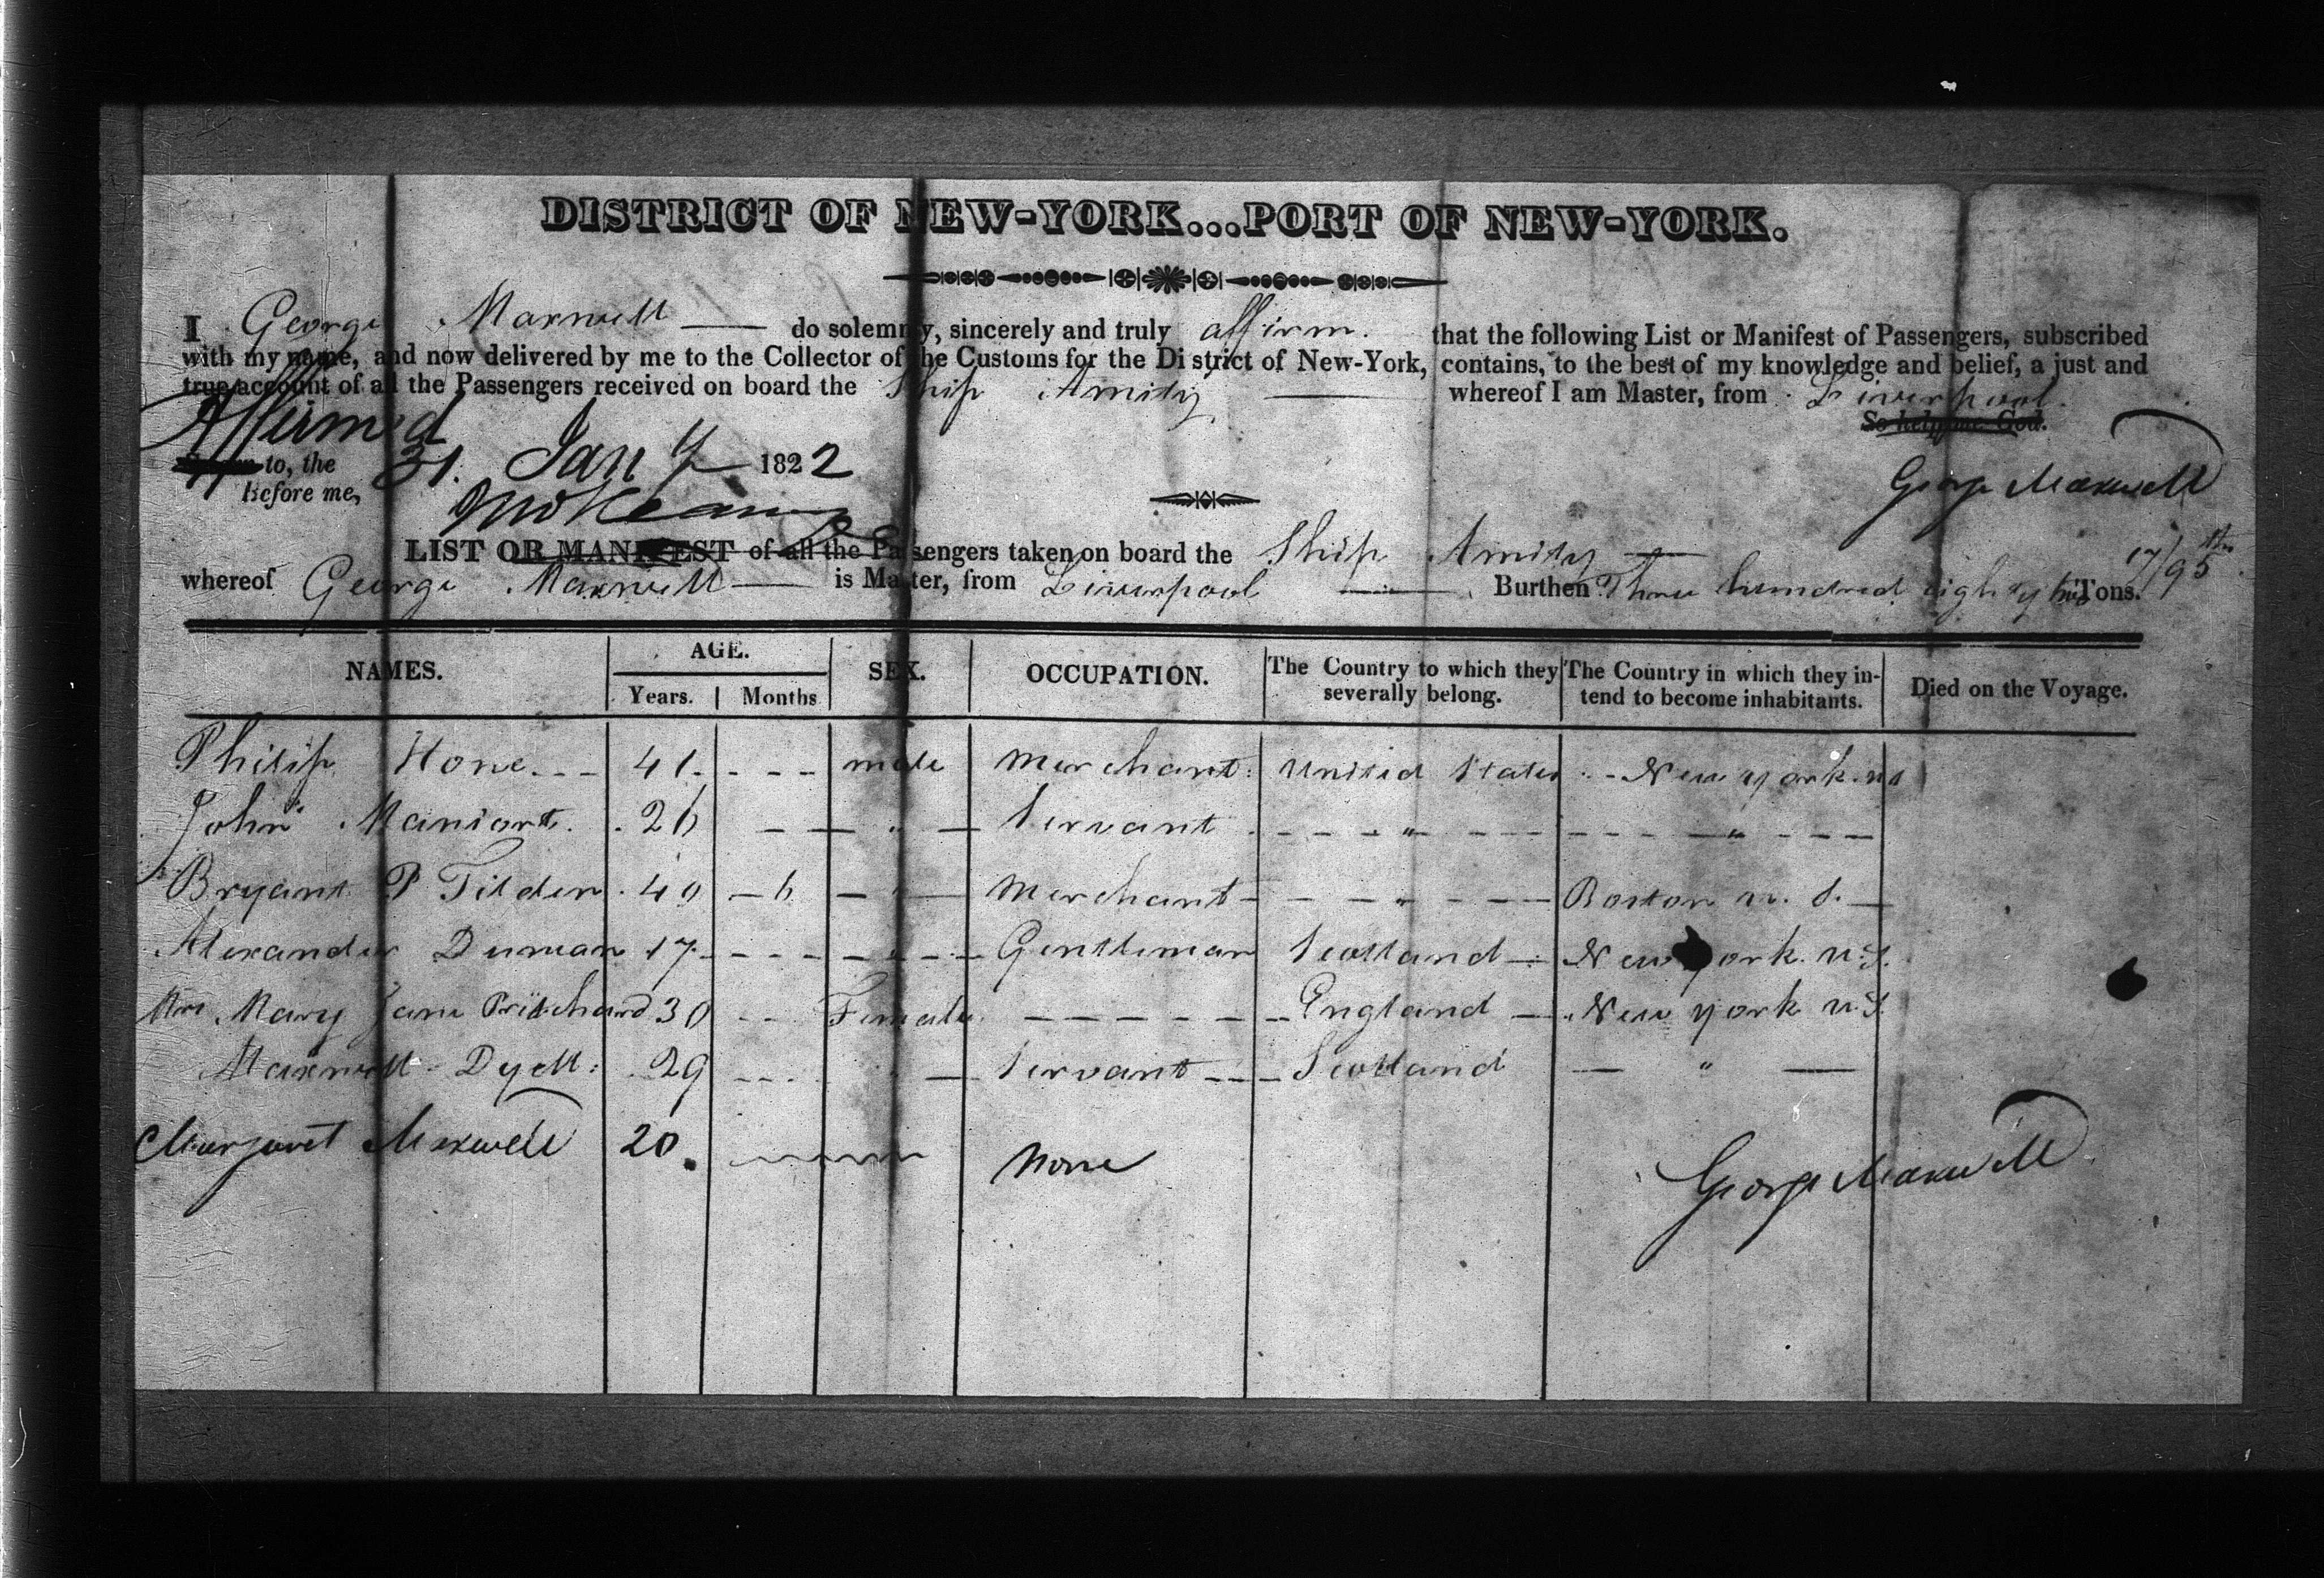 DISTRICT OF NEW-YORK...PORT OF NEW-YORK.
I George Maxwell — do solemnly, sincerely and truly affirm. that the following List or Manifest of Passengers, subscribed
with my name, and now delivered by me to the Collector of the Customs for the District of New-York, contains, to the best of my knowledge and belief, a just and
true account of all the Passengers received on board the Ship Amity — whereof I am Master, from Liverpool.
So help me God.
Affirmed
to, the 31. Jany 1822
Before me,
George Maxwell
LIST OR MANIFEST of all the Passengers taken on board the Ship Amity —
whereof George Maxwell — is Master, from Liverpool — Burthen Three hundred eighty two Tons. 17/95ths
NAMES. AGE. SEX. OCCUPATION. The Country to which they severally belong. The Country in which they intend to become inhabitants. Died on the Voyage.
Years. Months
Philip Hone --- 41. --- male Merchant: United States -- New york. us
John . 26 — — " — Servant - - - " - - - - - - " - - -
Bryant P Tilden . 40 — 6 — " — Merchant - - - " - - - Boston u. S. —
Alexander 17 - - - - - - - Gentleman Scotland — New york. u.S.
Mrs Mary Jane Pritchard 30 --- Female - - - - - - England — New york u.S.
Maxwell Dyett: 29 --- " — Servant --- Scotland — " —
Margaret Maxwell 20. None
George Maxwell